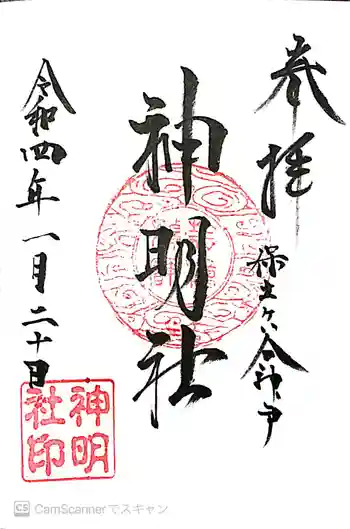 奉拝
保土ヶ谷神戸
神明社
令和四年一月二十日
神明
社印
CS CamScannerでスキャン